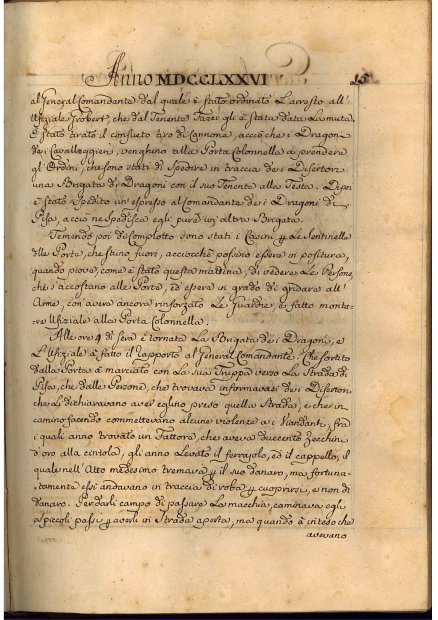 Anno MDCCLXXVI 15
al General Comandante dal quale è stato ordinato L'arresto all'
Uffiziale Grobert, che dal Tenente Tazei gli è stata data La muta.
È stato tirato il consueto tiro di Cannone, acciò che i Dragoni
de i Cavalleggieri, venghino alla Porta Colonnella à prendere
gli Ordini, che sono stati di Spedire in traccia de i Disertori
una Brigata di Dragoni con il suo Tenente alla Testa. Di più
è stato Spedito un'espresso al Comandante de i Dragoni di
Pisa, acciò ne Spedisca egli pure un'altra Brigata.
Temendo poi di complotto sono stati i Casini p le Sentinelle
delle Porte, che stiino fuori, acciocchè possino essere in positura,
quando piove, come è stato questa mattina, di vedere Le Persone,
che s'accostano alle Porte, ed essere in grado di gridare all'
Arme, con avere ancora rinforzato Le Guardie, e fatto monta-
re Uffiziale alle Porta Colonnella.
Alle ore 4 di Sera è tornata La Brigata de i Dragoni, e
L'Uffiziale à fatto il rapporto al General Comandante. Che sortito
dalla Porta è marciato con La sua Truppa verso La Strada di
Pisa, che dalle Persone, che trovava informavasi de i Disertori
che Le dichiaravano aver eglino preso quella Strada, e che in
camino facendo commettevano alcune violenze a i Viandanti, fra
i quali anno trovato un Fattore, che aveva duecento Zecchini
d'oro alla cintola, gli anno Levato il ferrajolo, ed il cappello, il
quale nell'Atto medesimo tremava p il suo danaro, ma fortuna-
tamente essi andavano in traccia di roba p cuoprirsi, e non di
danaro. Per darli campo di passare La macchia, caminava egli
a piccoli passi p averli in Strada aperta, ma quando à inteso che
avevano